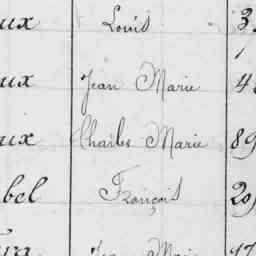 ux Louis 3
ux Jean Marie 4
ux Charles Marie 89
bel François 20
Jean Marie 17